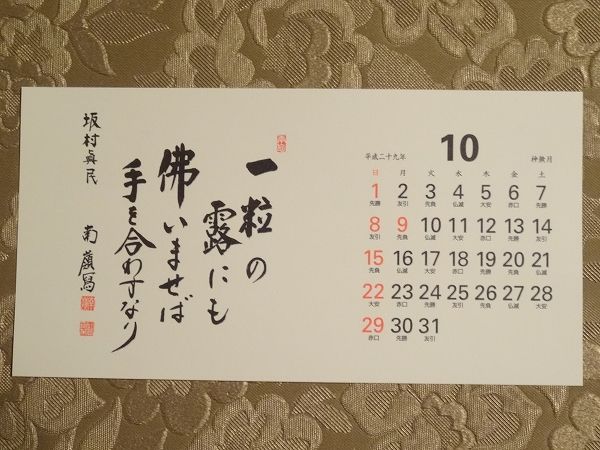 一粒の
露にも
佛いませば
手を合わすなり
坂村眞民
平成二十九年
10
神無月
日 月 火 水 木 金 土
1 2 3 4 5 6 7
先勝 友引 先負 仏滅 大安 赤口 先勝
8 9 10 11 12 13 14
友引 先負 仏滅 大安 赤口 先勝 友引
15 16 17 18 19 20 21
先負 仏滅 大安 赤口 先勝 友引
22 23 24 25 26 27 28
大安 赤口 先勝 友引 先負 仏滅 大安
29 30 31
赤口 先勝 友引